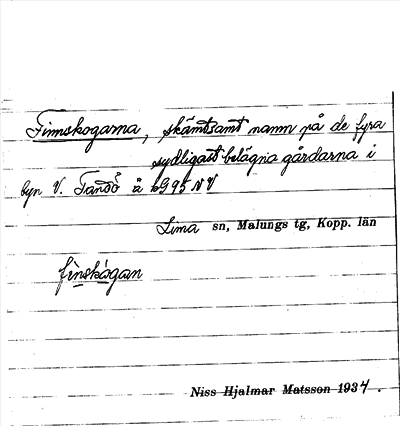 Finnskogarna, skämtsamt namn på de fyra
sydligast belägna gårdarna i
byn V. Tandö å G95NV
Lima sn, Malungs tg, Kopp. län
finskågan
Niss Hjalmar Matsson 1934.